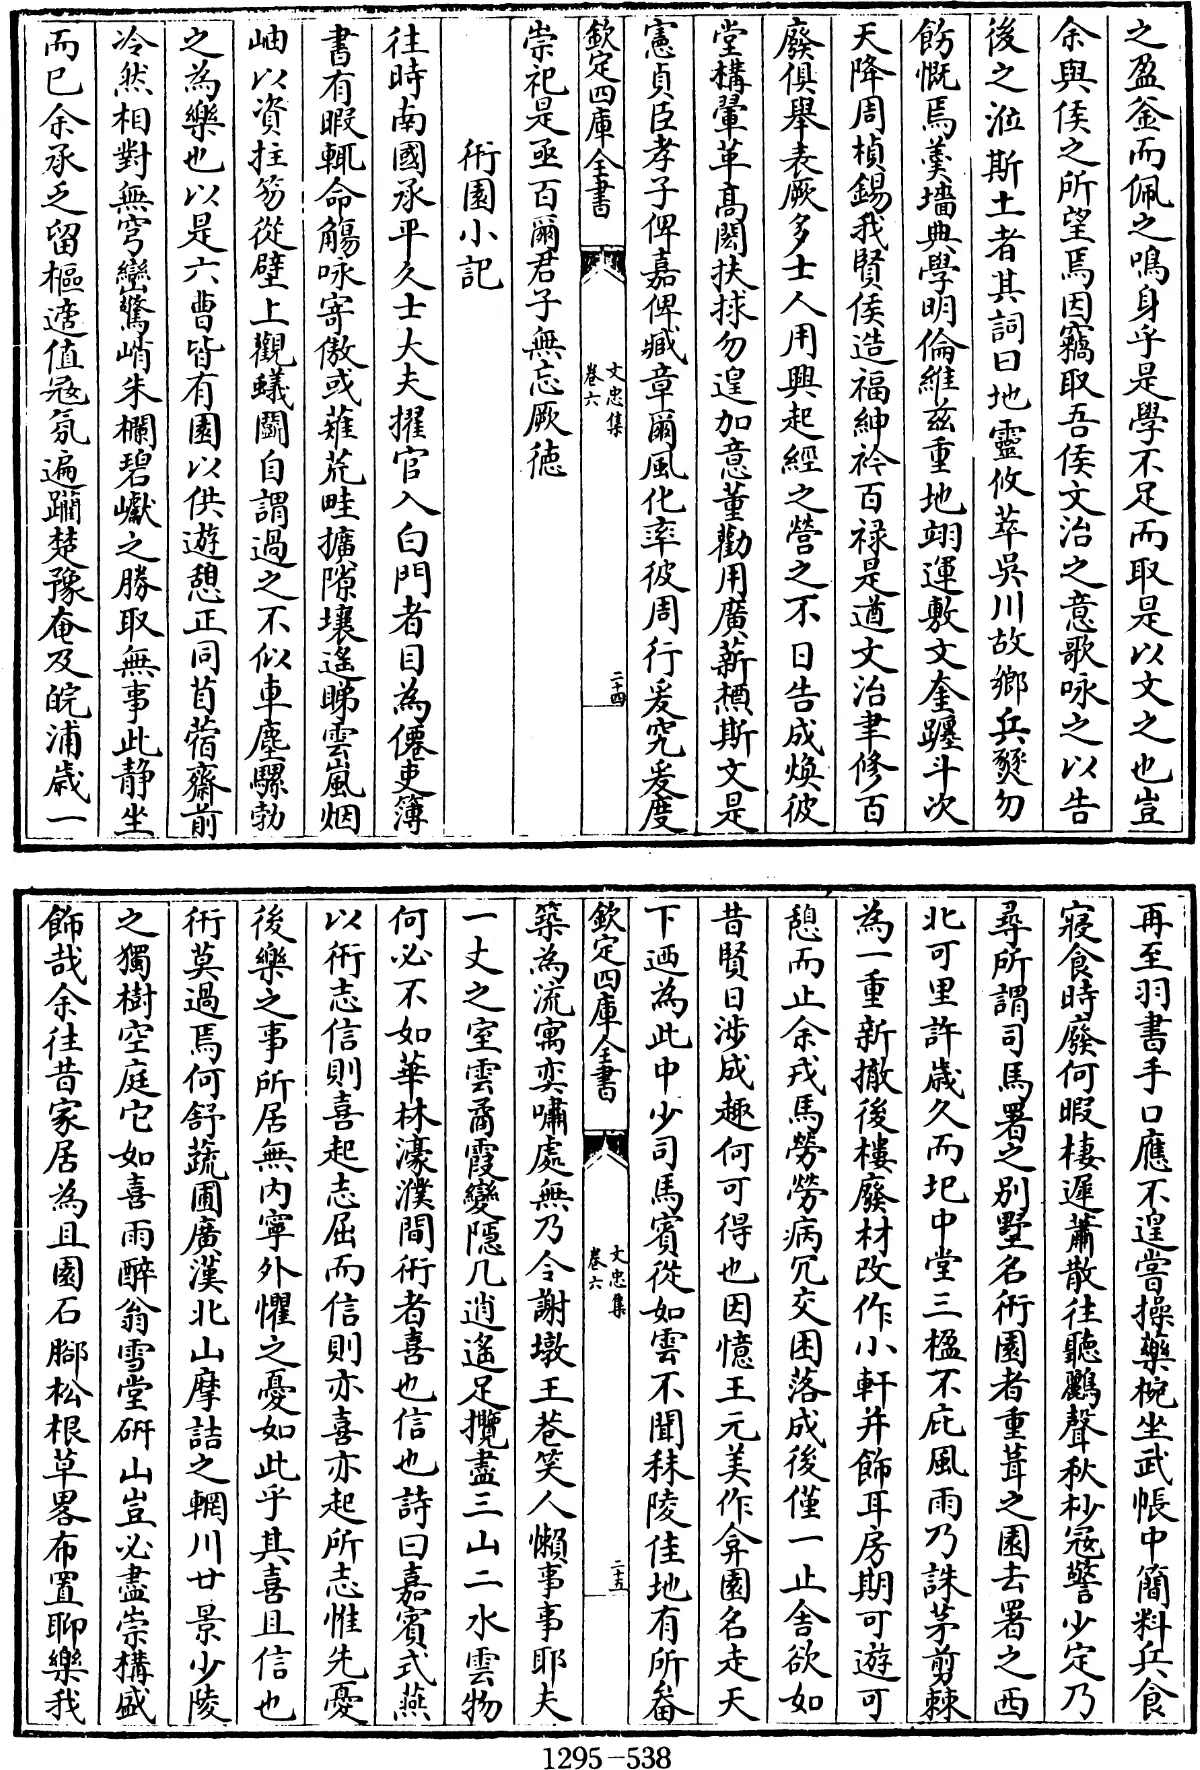 之盈釜而佩之鳴身乎是學不足而取是以文之也豈
余與侯之所望焉因竊取吾侯文治之意歌咏之以告
後之涖斯土者其詞曰地靈攸萃吳川故鄉兵燹勿
飭慨焉羹墻典學明倫維兹重地翊運敷文奎躔斗次
天降周楨錫我賢侯造福紳衿百禄是遒文治聿修百
廢俱舉表厥多士人用興起經之營之不日告成煥彼
堂構翬革高閎扶捄勿遑加意董勸用廣薪槱斯文是
憲貞臣孝子俾嘉俾臧章爾風化率彼周行爰究爰度
欽定四庫全書
文忠集
卷六
二十四
崇祀是亟百爾君子無忘厥徳
術園小記
往時南國承平久士大夫擢官入白門者目為僊吏簿
書有暇輒命觴咏寄傲或薙荒畦擴隙壤遙睇雲嵐烟
岫以資拄笏從壁上觀蟻鬬自謂過之不似車塵騾勃
之為樂也以是六曹皆有園以供遊憩正同苜蓿齋前
冷然相對無穹巒驚峭朱欄碧巘之勝取無事此静坐
而已余承乏留樞適值宼氛遍躝楚豫奄及皖浦歳一
再至羽書手口應不遑嘗操藥椀坐武帳中簡料兵食
寢食時廢何暇棲遲蕭散往聽鸝聲秋杪宼警少定乃
尋所謂司馬署之别墅名術園者重葺之園去署之西
北可里許歲久而圮中堂三楹不庇風雨乃誅茅剪棘
為一重新撤後樓廢材改作小軒并飾耳房期可遊可
憩而止余戎馬勞勞病冗交困落成後僅一止舍欲如
昔賢日涉成趣何可得也因憶王元美作弇園名走天
下迺為此中少司馬賓從如雲不聞秣陵佳地有所畚
欽定四庫全書
文忠集
卷六
二十五
築為流寓奕嘯處無乃令謝墩王巷笑人懶事事耶夫
一丈之室雲矞霞變隱几逍遙足攬盡三山二水雲物
何必不如華林濠濮間術者喜也信也詩曰嘉賓式燕
以術志信則喜起志屈而信則亦喜亦起所志惟先憂
後樂之事所居無内寧外懼之憂如此乎其喜且信也
術莫過焉何舒蔬圃廣漢北山摩詰之輞川廿景少陵
之獨樹空庭它如喜雨醉翁雪堂硏山豈必盡崇構盛
飾哉余往昔家居為且園石腳松根草畧布置聊樂我
1295-538